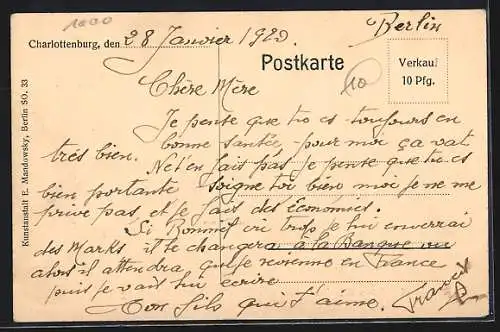 1000
Berlin
Charlottenburg, den 28 Janvier 1920
Postkarte
Verkauf
10 Pfg.
10
Chère Mère
Je pense que tu es toujours en
bonne santée, pour moi ça va
très bien. Net'en fais pas je pense que tu es
bien portante soigne toi bien moi je ne me
prive pas et je fais des Économies.
Si Rommef ou trop je lui enverrai
des Marks il le changera à la Banque ou
alors il attendra que je revienne en France
puis je vais lui ecrire
Ton fils qui t'aime. Francis
Kunstanstalt E. Mandowsky, Berlin SO. 33